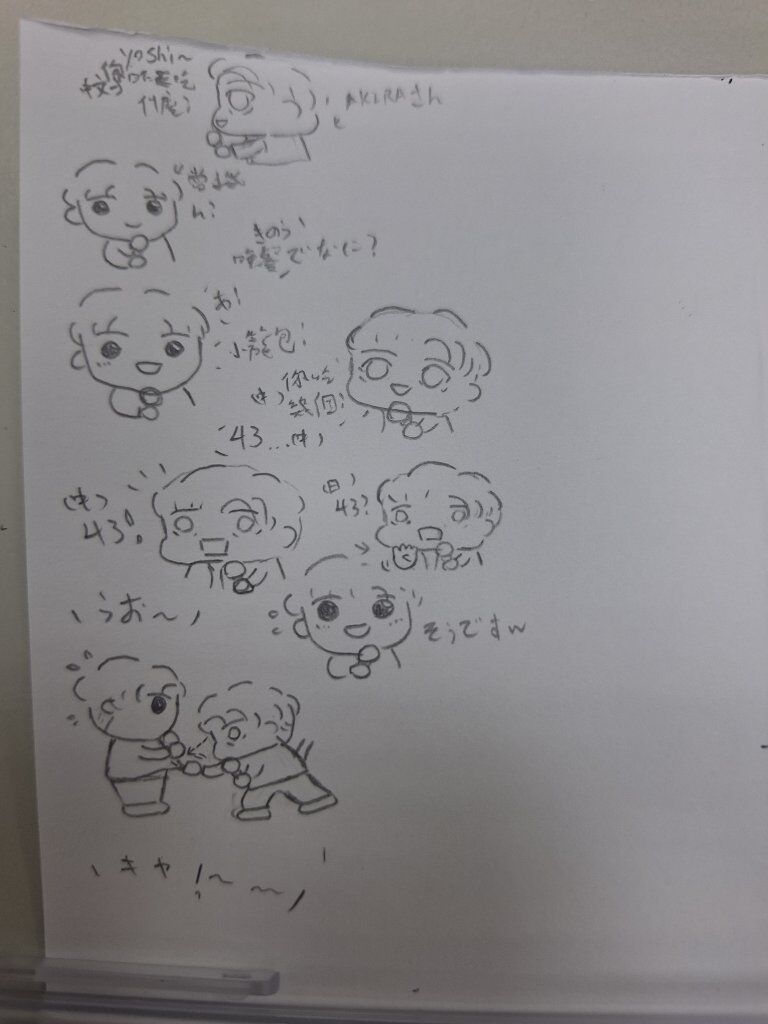 Yoshi~
你昨天吃
什麼?
中文
AKIRAさん
ん?
きのう
晩餐でなに?
あ!
小籠包!
(中)
你吃
幾個?
43...(中)
(中)
43!
(日)
43?
うお~
そうですw
キャ!~~